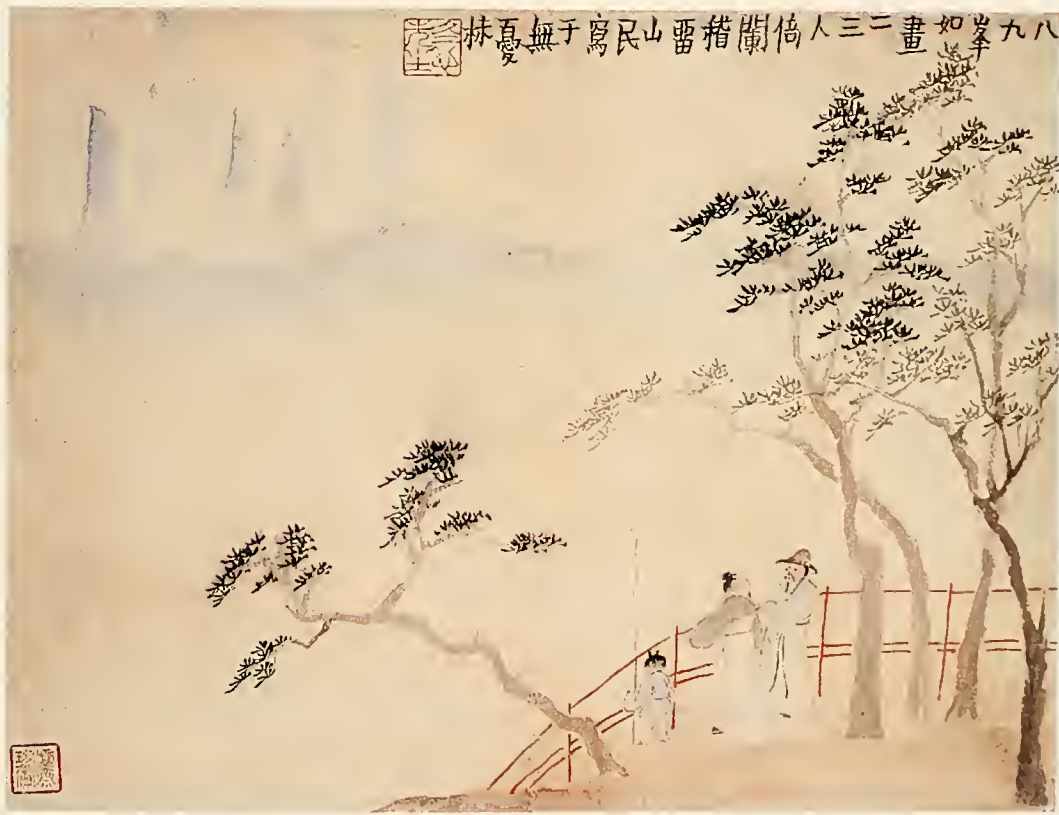 八九峯如畫二三人倚闌稽畱山民寫于無憂林